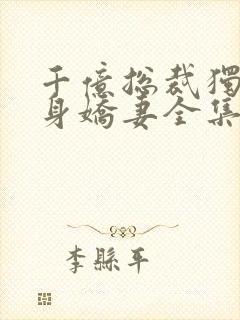 千億总裁獨
身嬌妻全集
李縣平